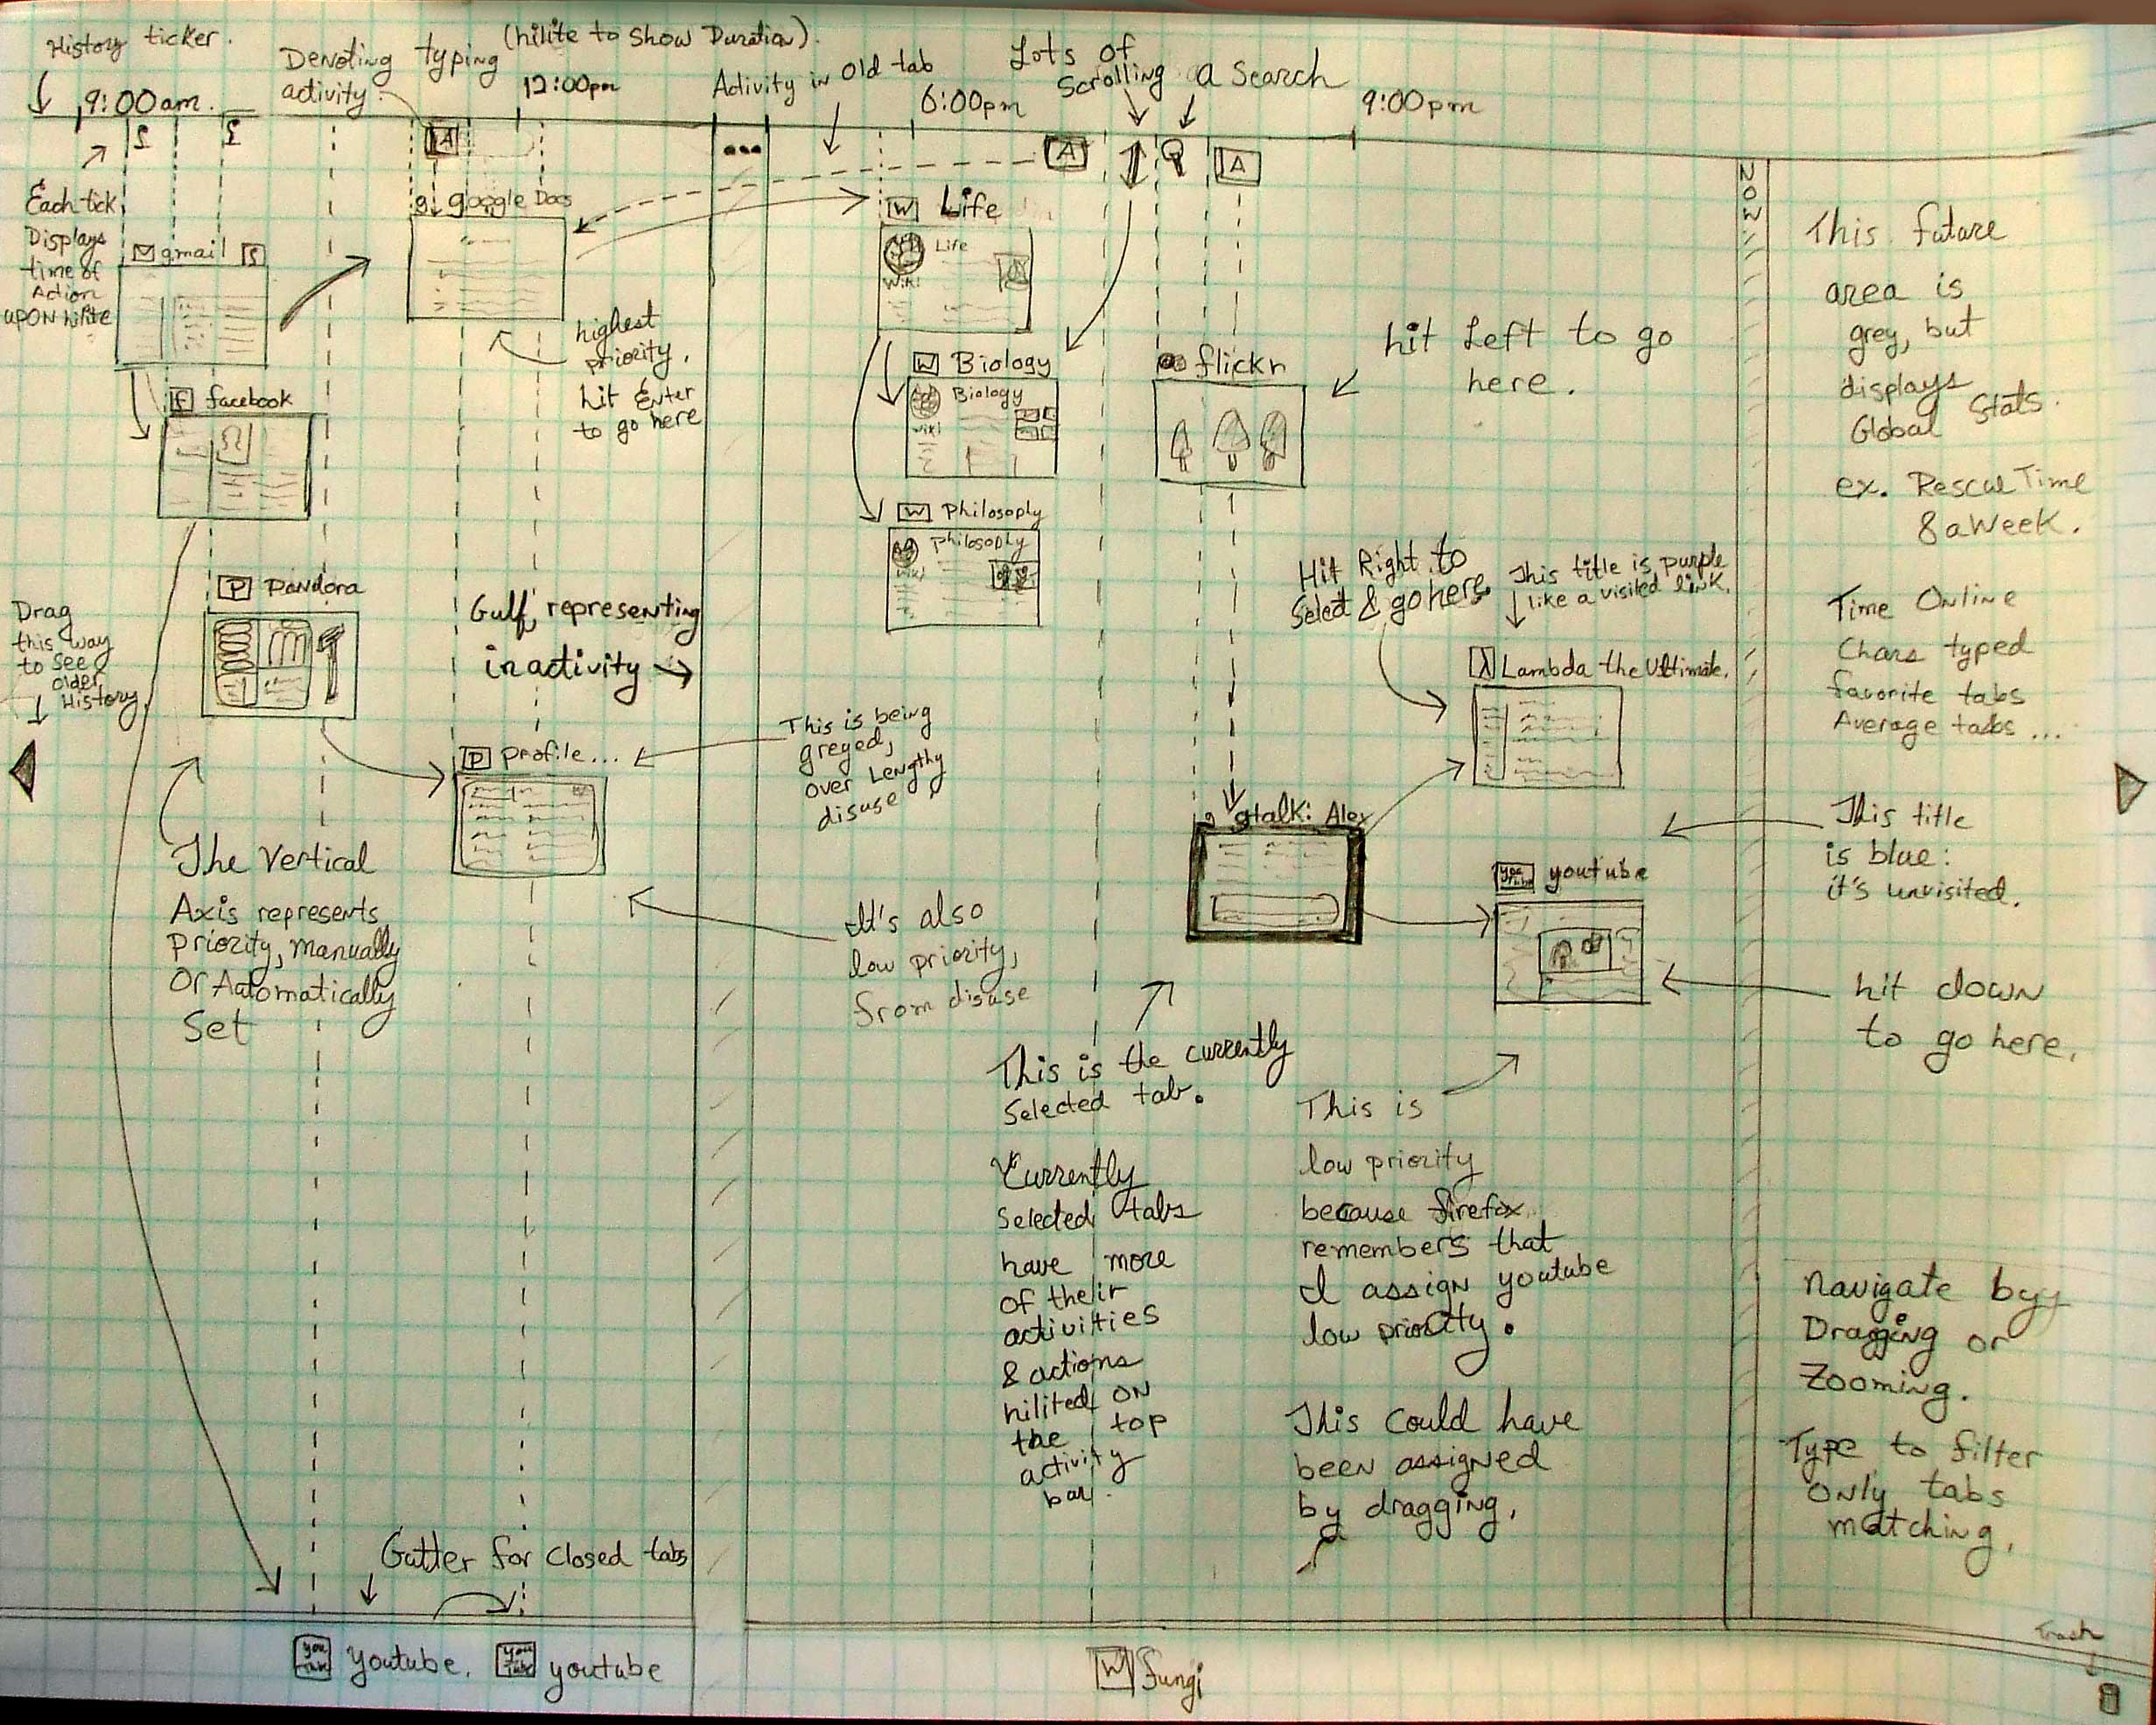 History ticker.
9:00am.
Denoting typing
activity.
(hilite to show Duration).
12:00pm
Activity in old tab
6:00pm
Lots of
scrolling
a search
9:00pm
A
...
A
A
Each tick
Displays
time of
Action
upon hilite
gmail
g google Docs
highest
priority.
hit Enter
to go here
W Life
Life
Wiki
W Biology
Biology
wiki
W Philosophy
Philosophy
wiki
flickr
hit Left to go
here.
NOW
This future
area is
grey, but
displays
Global Stats.
ex. RescueTime
8aWeek.
Time Online
Chars typed
favorite tabs
Average tabs ...
f facebook
P pandora
Drag
this way
to see
older
History.
Gulf, representing
inactivity
Hit Right to
Select & go here.
This title is purple
like a visited link.
λ Lambda the Ultimate.
P profile...
This is being
greyed,
over Lengthy
disuse
g gtalk: Alex
You Tube youtube
This title
is blue:
it's unvisited.
hit down
to go here.
The Vertical
Axis represents
priority, manually
Or Automatically
Set
It's also
low priority,
from disuse
This is the currently
Selected tab.
Currently
selected tabs
have more
of their
activities
& actions
hilited on
the top
activity
bar.
This is
low priority
because firefox
remembers that
I assign youtube
low priority.
This could have
been assigned
by dragging.
Navigate by
Dragging or
Zooming.
Type to filter
only tabs
matching.
Gutter for closed tabs
You Tube youtube.
You Tube youtube
W fungi
Trash